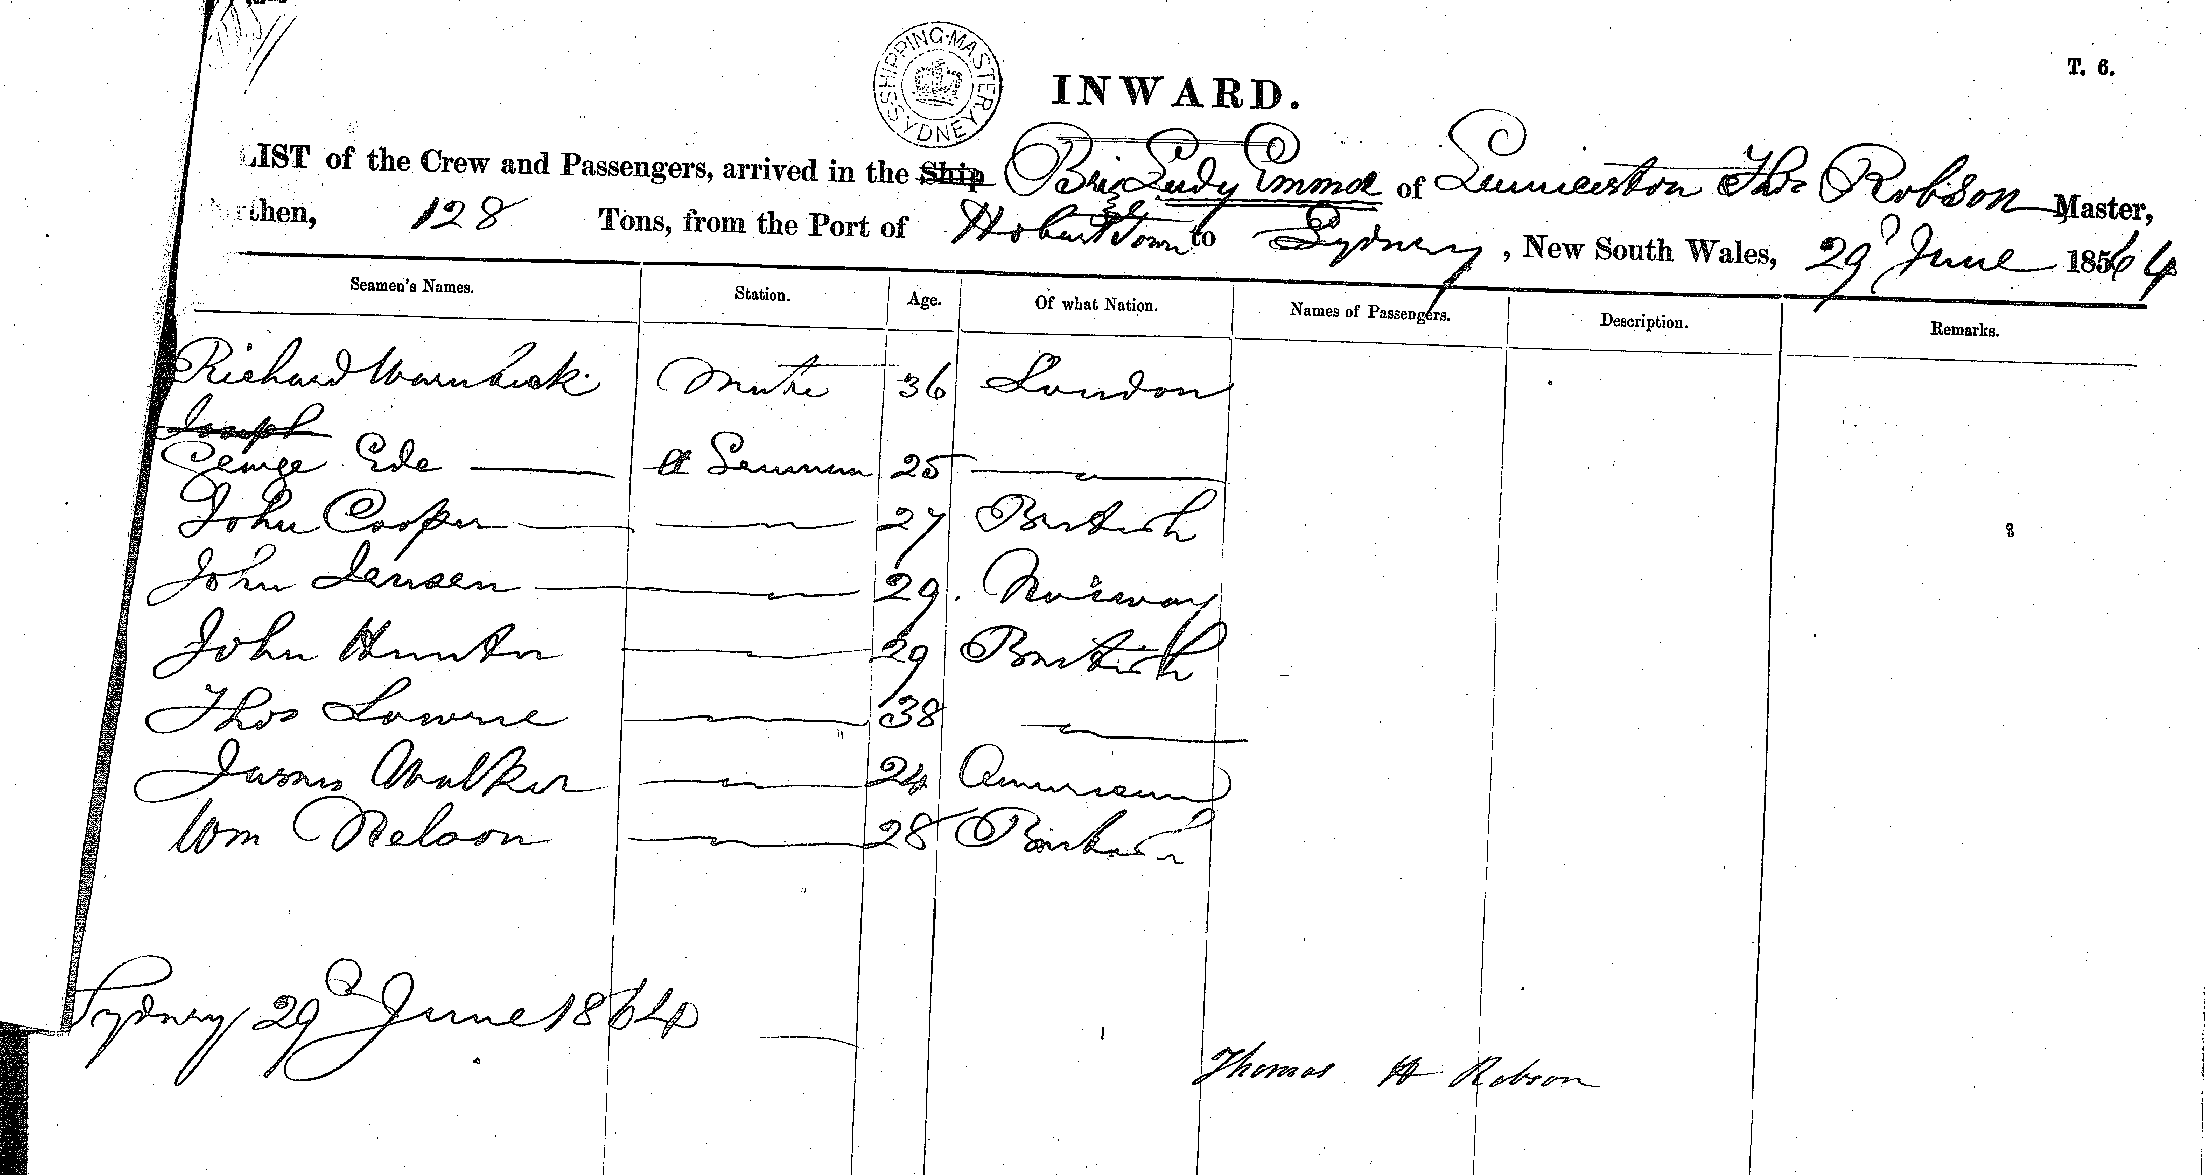 SHIPPING MASTER SYDNEY
INWARD.
T. 6.
LIST of the Crew and Passengers, arrived in the Ship Brig Lady Emma of Launceston Thos Robson Master,
rthen, 128 Tons, from the Port of Hobart Town to Sydney, New South Wales, 29 June 1864
Seamen's Names. Station. Age. Of what Nation. Names of Passengers. Description. Remarks.
Richard Mate 36 London
Joseph
George Ede — A Seaman 25 —
John Cooper — — 27 British
John Jensen — — 29. Norway
John Hunter — 29 British
Thos Lowrie — 38 —
James Walker — 24 American
Wm Nelson — 28 British
Sydney 29 June 1864
Thomas H Robson